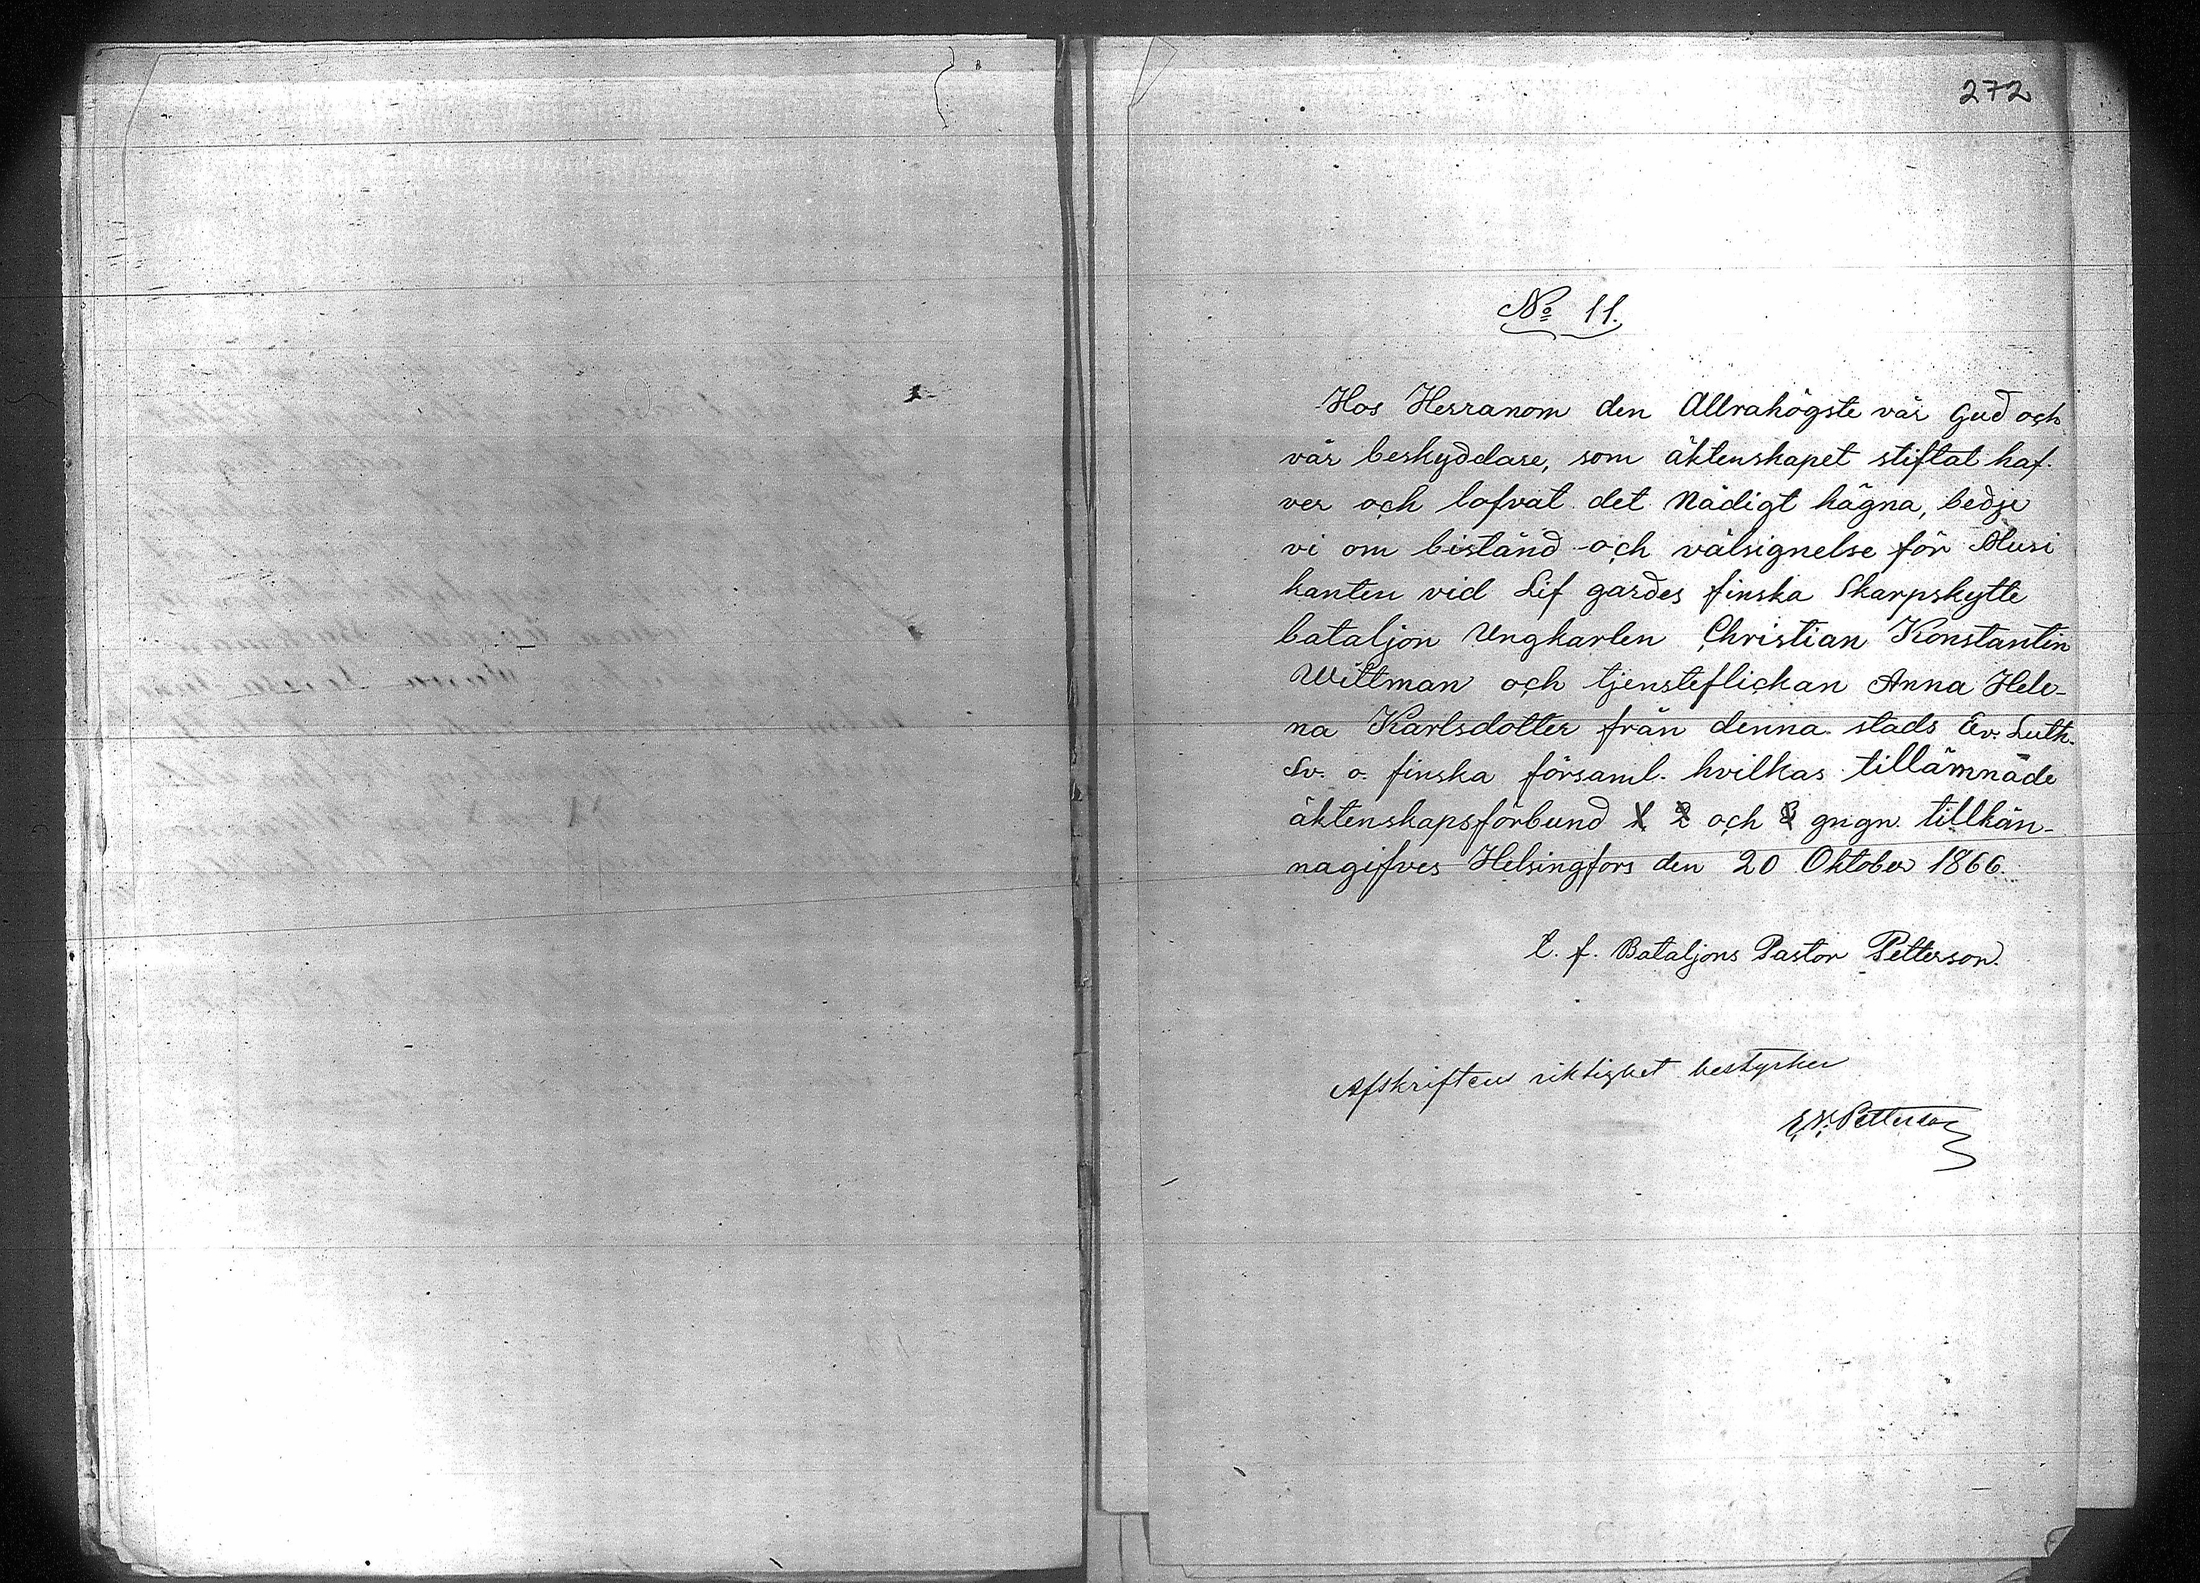 272
No 11.
Hos Herranom den Allrahögste vår Gud och
vår beskyddare, som äktenskapet stiftat haf-
ver och lofvat det Nådigt hägna, bedje
vi om bistånd och välsignelse för Musi
kanten vid Lif gardes finska Skarpskytte
bataljon Ungkarlen Christian Konstantin
Wittman och tjensteflickan Anna Hele-
na Karlsdotter från denna stads Ev. Luth.
Sv. o. finska församl. hvilkas tillämnade
äktenskapsförbund 1 2 och 3 gngn. tillkän-
nagifves Helsingfors den 20 Oktober 1866.
t. f. Bataljons Pastor Petterson.
Afskriftens riktighet bestyrker
E. V. Petterson